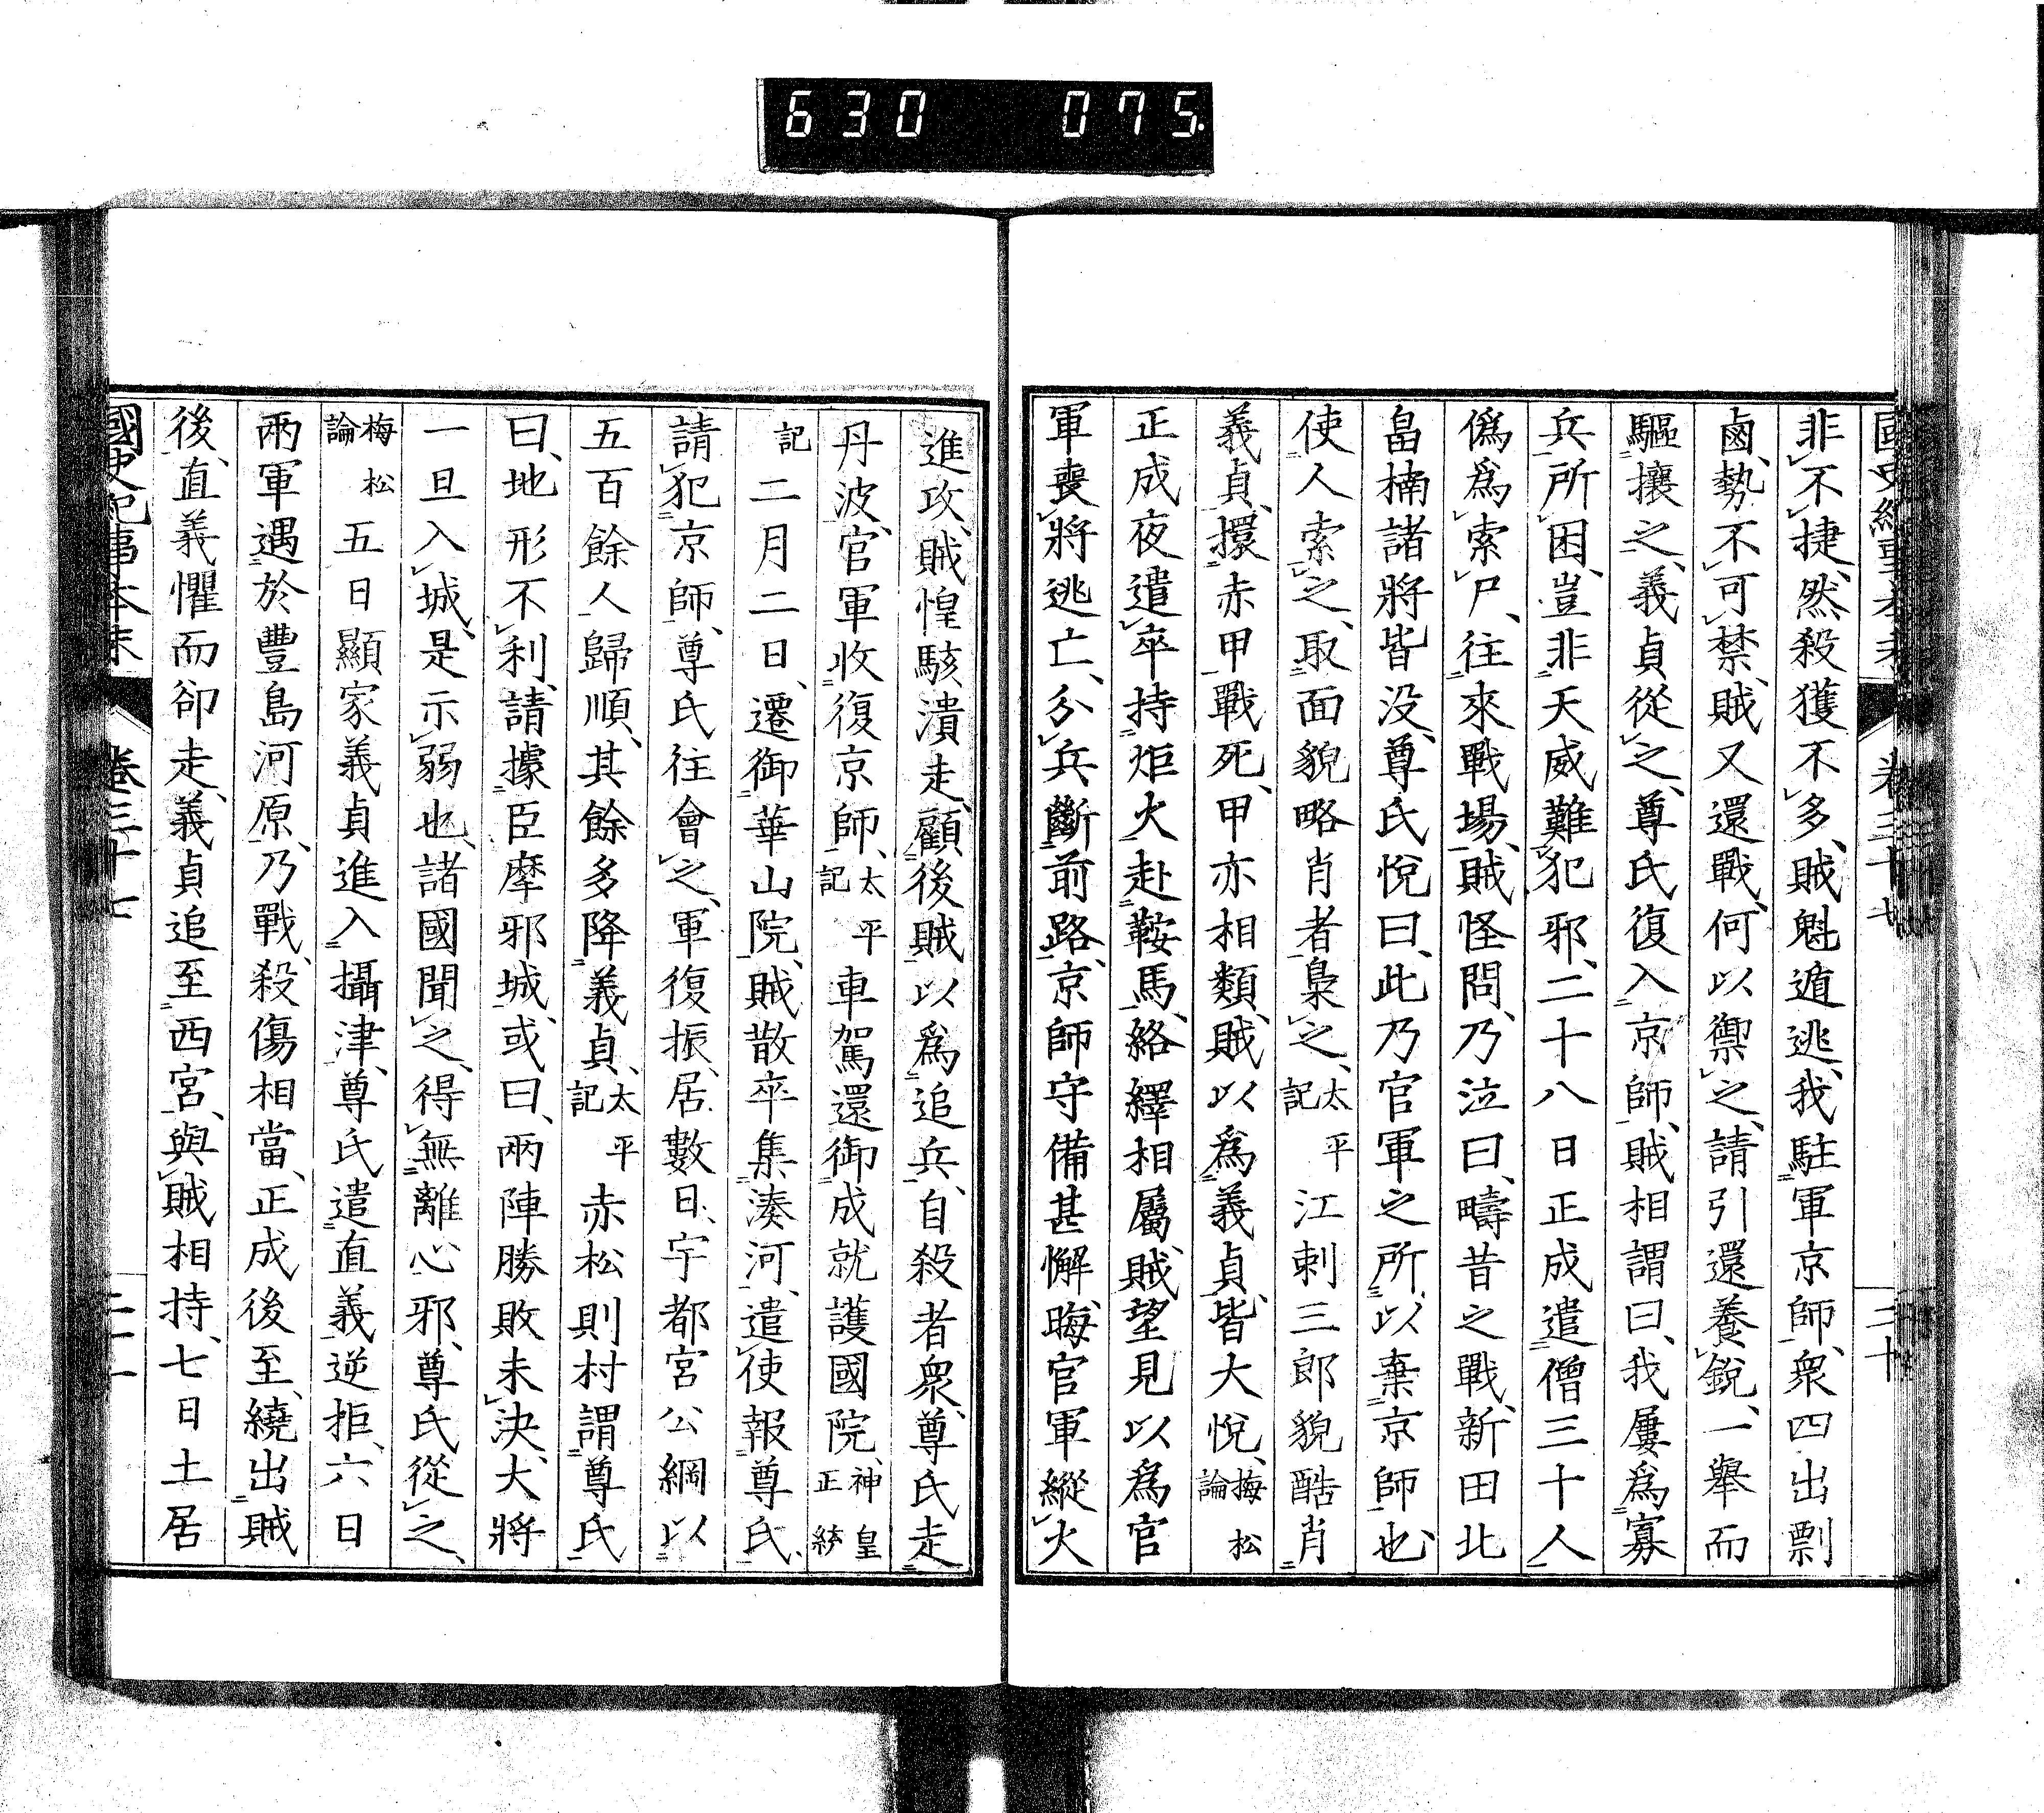 630 075
非不捷、然殺獲不多、賊魁遁逃、我駐軍京師、衆四出剽
鹵、勢不可禁、賊又還戰、何以禦之、請引還養鋭、一舉而
驅攘之、義貞從之、尊氏復入京師、賊相謂曰、我屢爲寡
兵所困、豈非天威難犯邪、二十八日正成遣僧三十人
僞爲索尸、往來戰場、賊怪問、乃泣曰、疇昔之戰、新田北
畠楠諸將皆没、尊氏悅曰、此乃官軍之所以棄京師也、
使人索之、取面貌略肖者梟之、太平記江剌三郎貌酷肖
義貞、擐赤甲戰死、甲亦相類、賊以爲義貞、皆大悅、梅松論
正成夜遣卒持炬火赴鞍馬、絡繹相屬、賊望見以爲官
軍喪將逃亡、分兵斷前路、京師守備甚懈、晦官軍縱火
進攻、賊惶駭潰走、顧後賊以爲追兵、自殺者衆、尊氏走
丹波、官軍收復京師、太平記車駕還御成就護國院、神皇正統
記二月二日、遷御華山院、賊散卒集湊河、遣使報尊氏、
請犯京師、尊氏往會之、軍復振、居數日、宇都宮公綱以
五百餘人歸順、其餘多降義貞、太平記赤松則村謂尊氏
曰、地形不利、請據臣摩邪城、或曰、兩陣勝敗未決、大將
一旦入城、是示弱也、諸國聞之、得無離心邪、尊氏從之、
梅松論五日顯家義貞進入攝津、尊氏遣直義逆拒、六日
兩軍遇於豐島河原、乃戰、殺傷相當、正成後至、繞出賊
後、直義懼而卻走、義貞追至西宮、與賊相持、七日土居
國史紀事本末 卷三十七 二十一